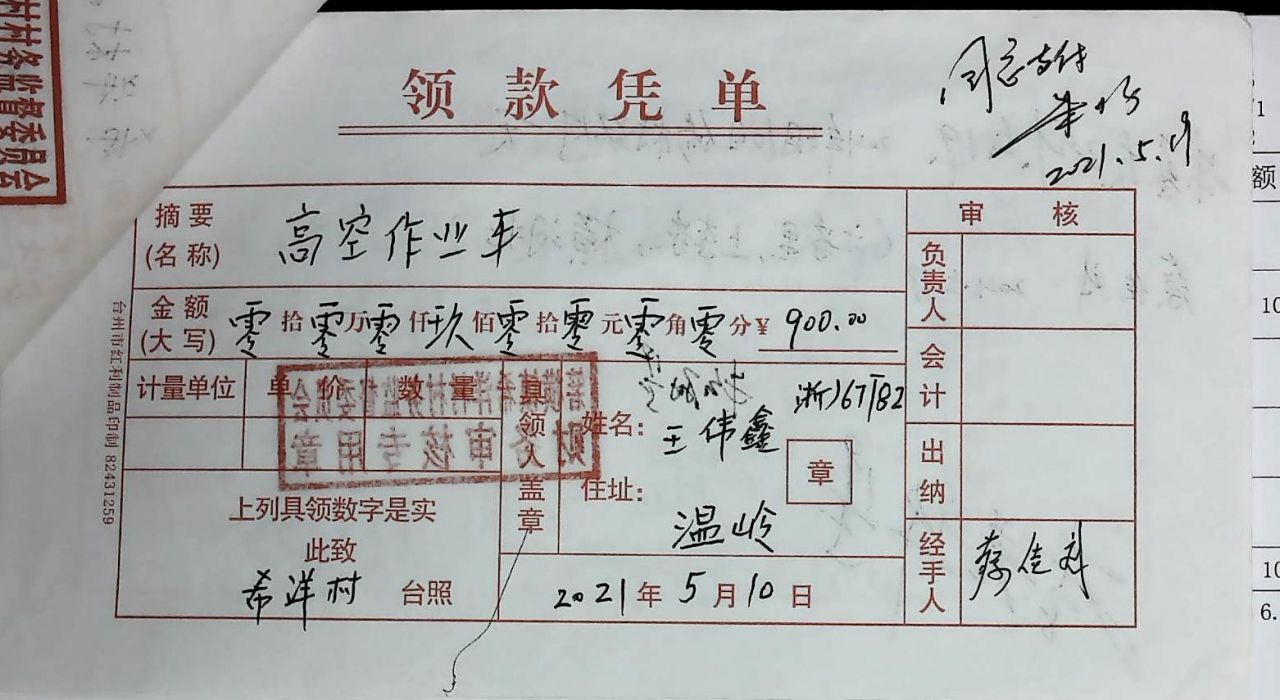 村村务监督委员会
领款凭单
同意支付
2021.5.19
摘要
(名称)
高空作业车
审核
负责人
金额
(大写)
零拾零万零仟玖佰零拾零元零角零分¥900.00
会计
计量单位 单价 数量
具领人盖章
浙J67182
姓名:
王伟鑫
章
财务审核专用章
住址:
温岭
出纳
上列具领数字是实
此致
希洋村 台照
2021年5月10日
经手人
台州市红利制品印制 82431259
额
10
10
6.